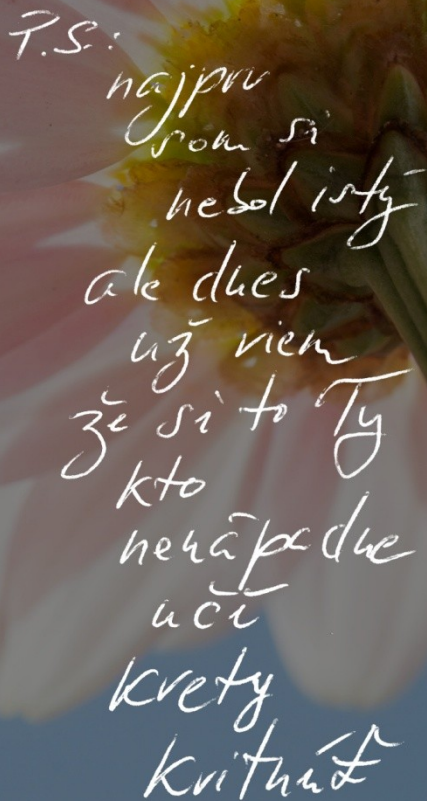 P.S.:
najprv
som si
nebol istý
ale dnes
už viem
že si to Ty
kto
nenápadne
učí
kvety
kvitnúť